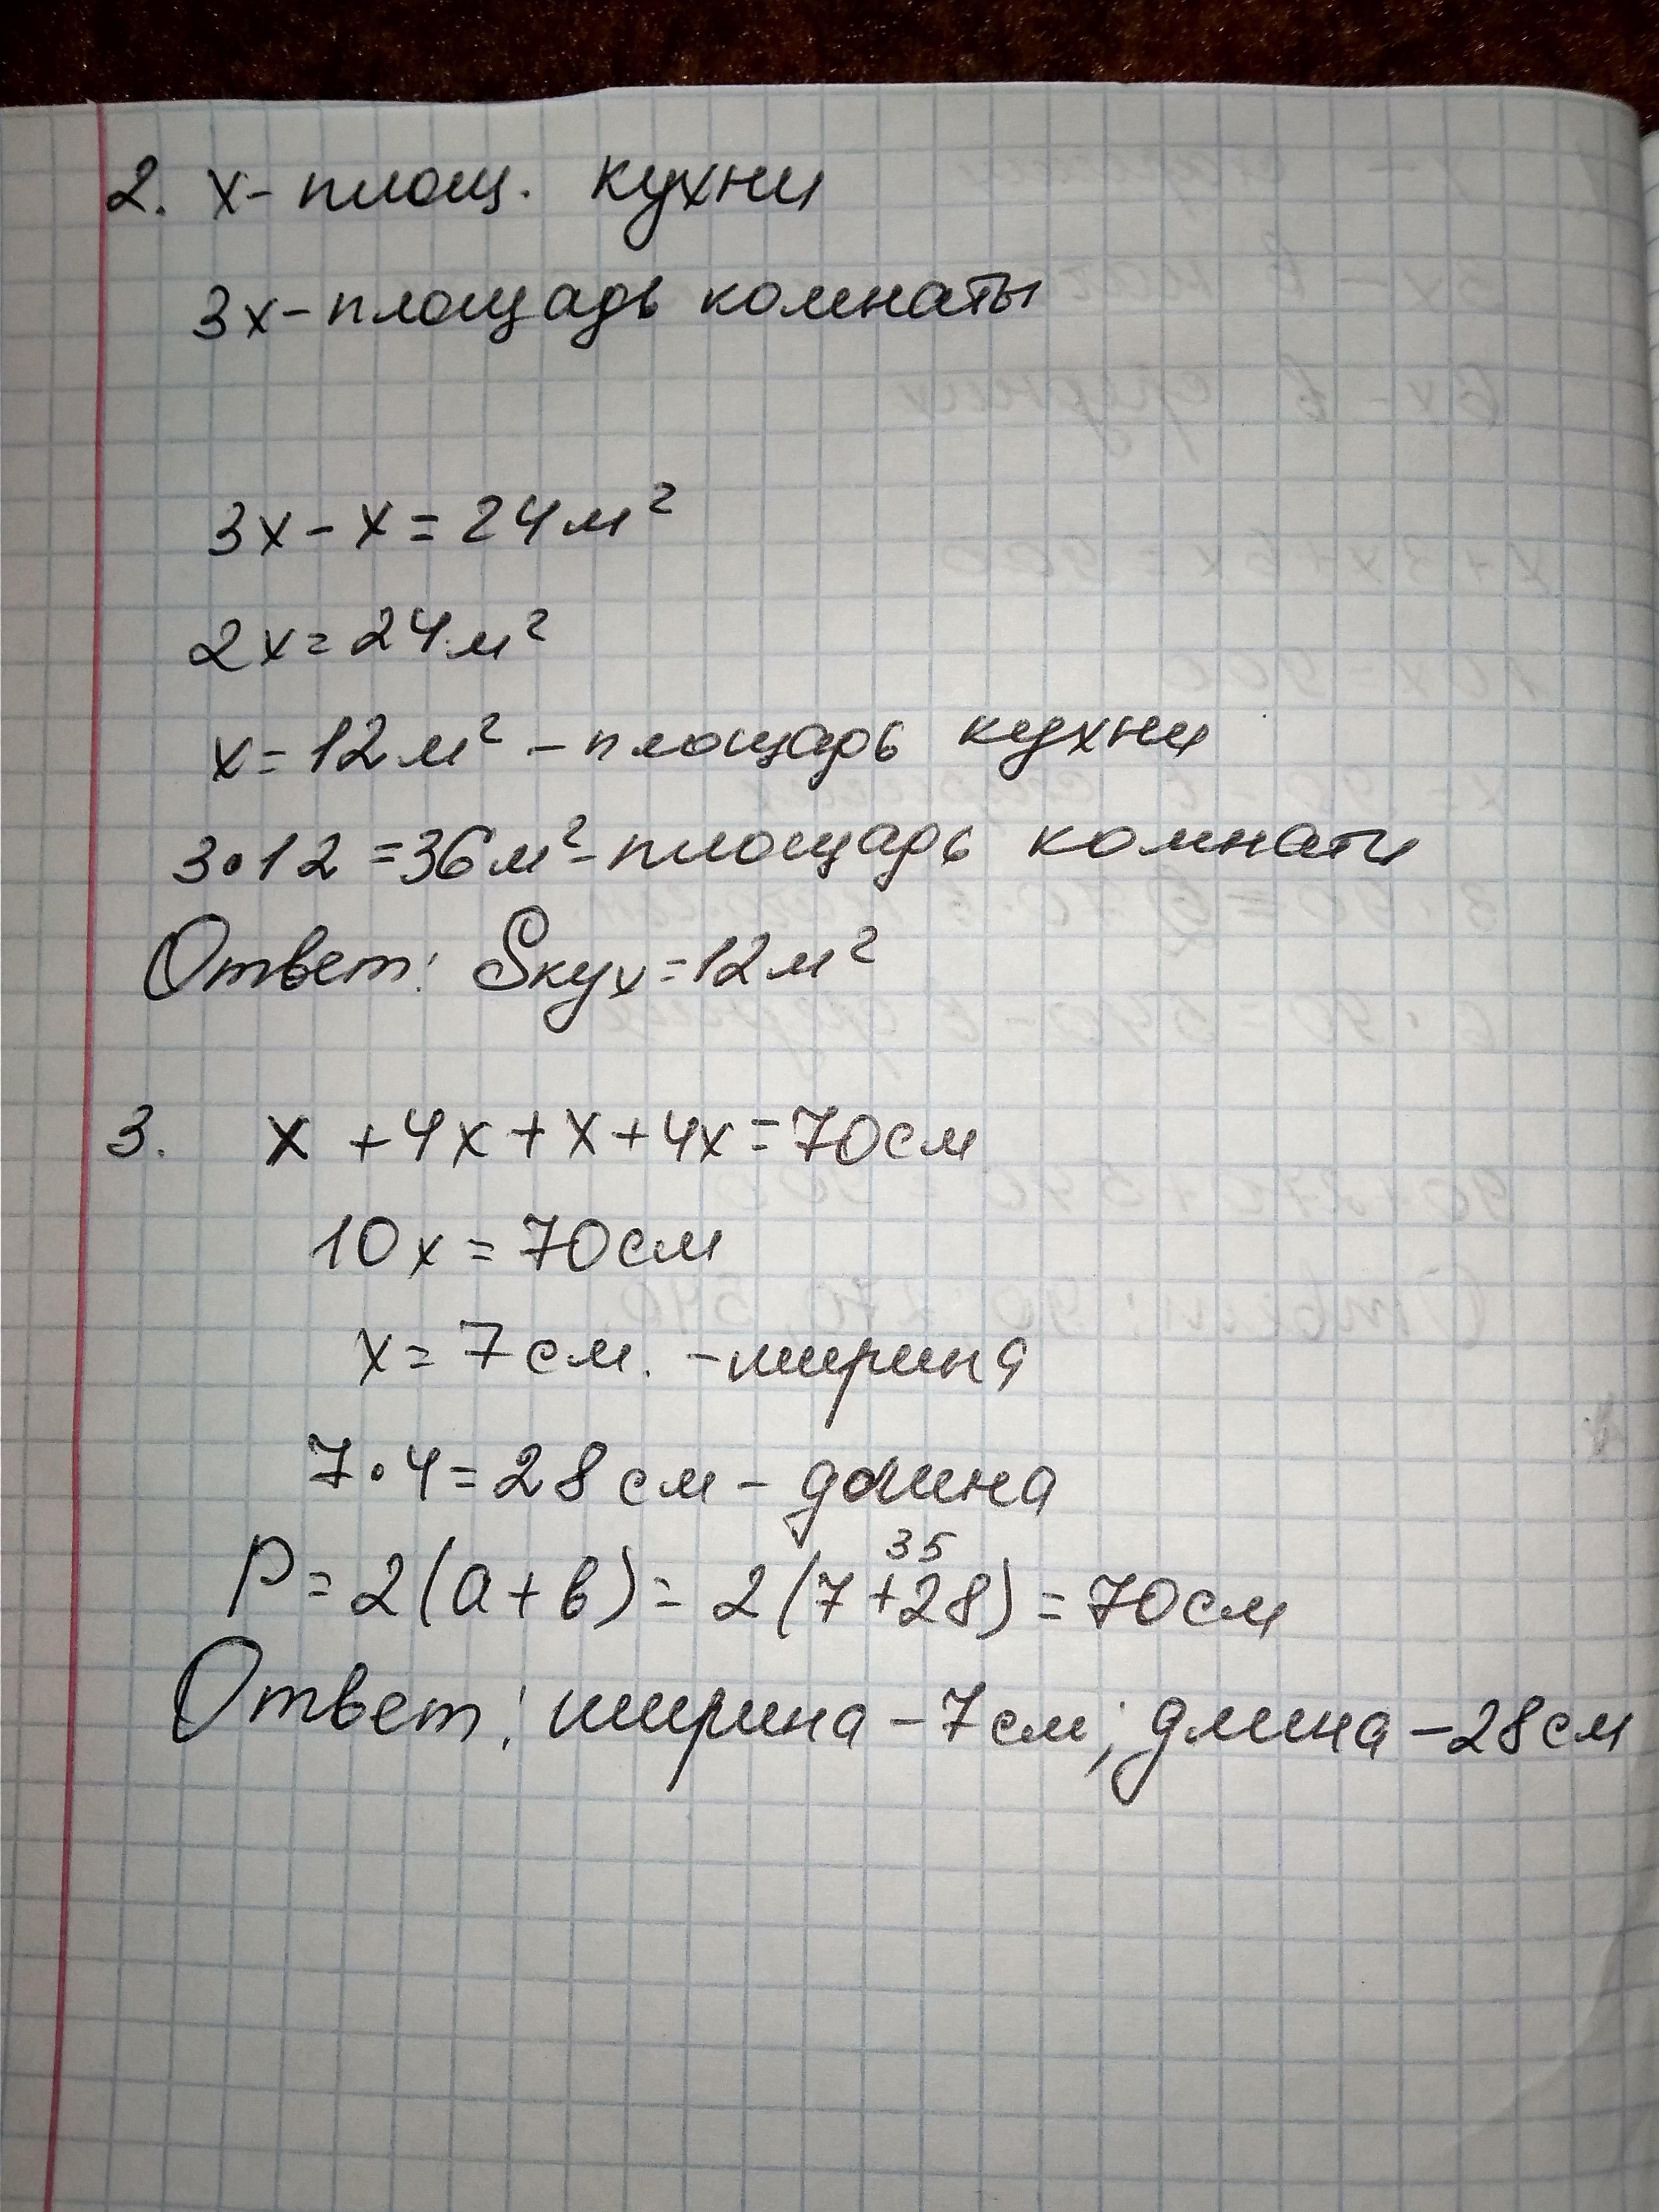 2. x - площ. кухни
3x - площадь комнаты
3x - x = 24 м²
2x = 24 м²
x = 12 м² - площадь кухни
3•12 = 36 м² - площадь комнаты
Ответ: Sкух = 12 м²
3. x + 4x + x + 4x = 70 см
10x = 70 см
x = 7 см. - ширина
7•4 = 28 см - длина
35
P = 2(a + b) = 2(7 + 28) = 70 см
Ответ: ширина - 7 см; длина - 28 см